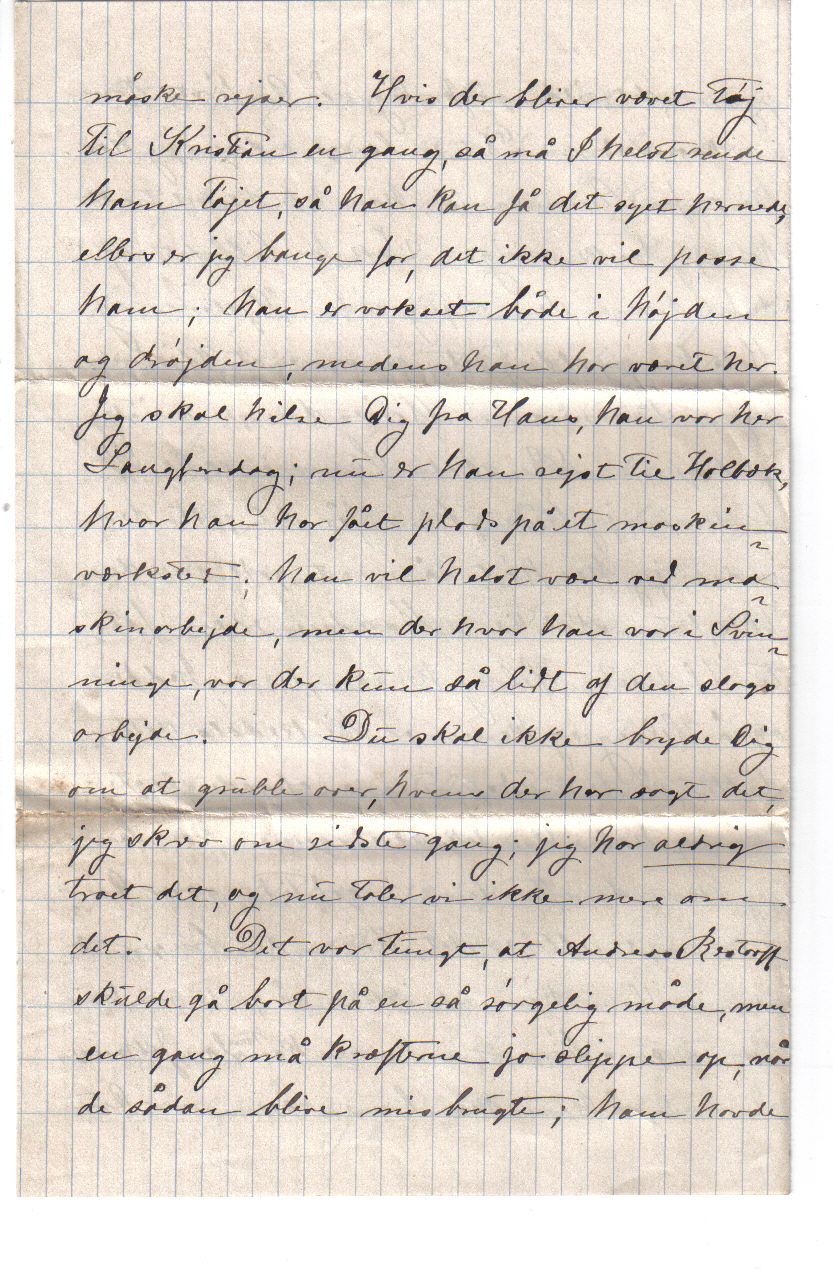 måske rejser. Hvis der bliver vævet Tøj
til Kristian en gang, så må I helst sende
ham Tøjet, så han kan få det syet hernede,
ellers er jeg bange for, det ikke vil passe
ham; han er vokset både i højden
og drøjden, medens han har været her.
Jeg skal hilse Dig fra Hans, han var her
Langfredag; nu er han rejst til Holbæk,
hvor han har fået plads på et maskin-
værksted; han vil helst være ved ma-
skinarbejde, men der hvor han var i Svin-
ninge, var der kun så lidt af den slags
arbejde. Du skal ikke bryde Dig
om at gruble over, hvem der har sagt det,
jeg skrev om sidste gang; jeg har aldrig
troet det, og nu taler vi ikke mere om
det. Det var tungt, at Andreas Restorff
skulde gå bort på en så sørgelig måde, men
en gang må kræfterne jo slippe op, når
de sådan blive misbrugte; ham havde